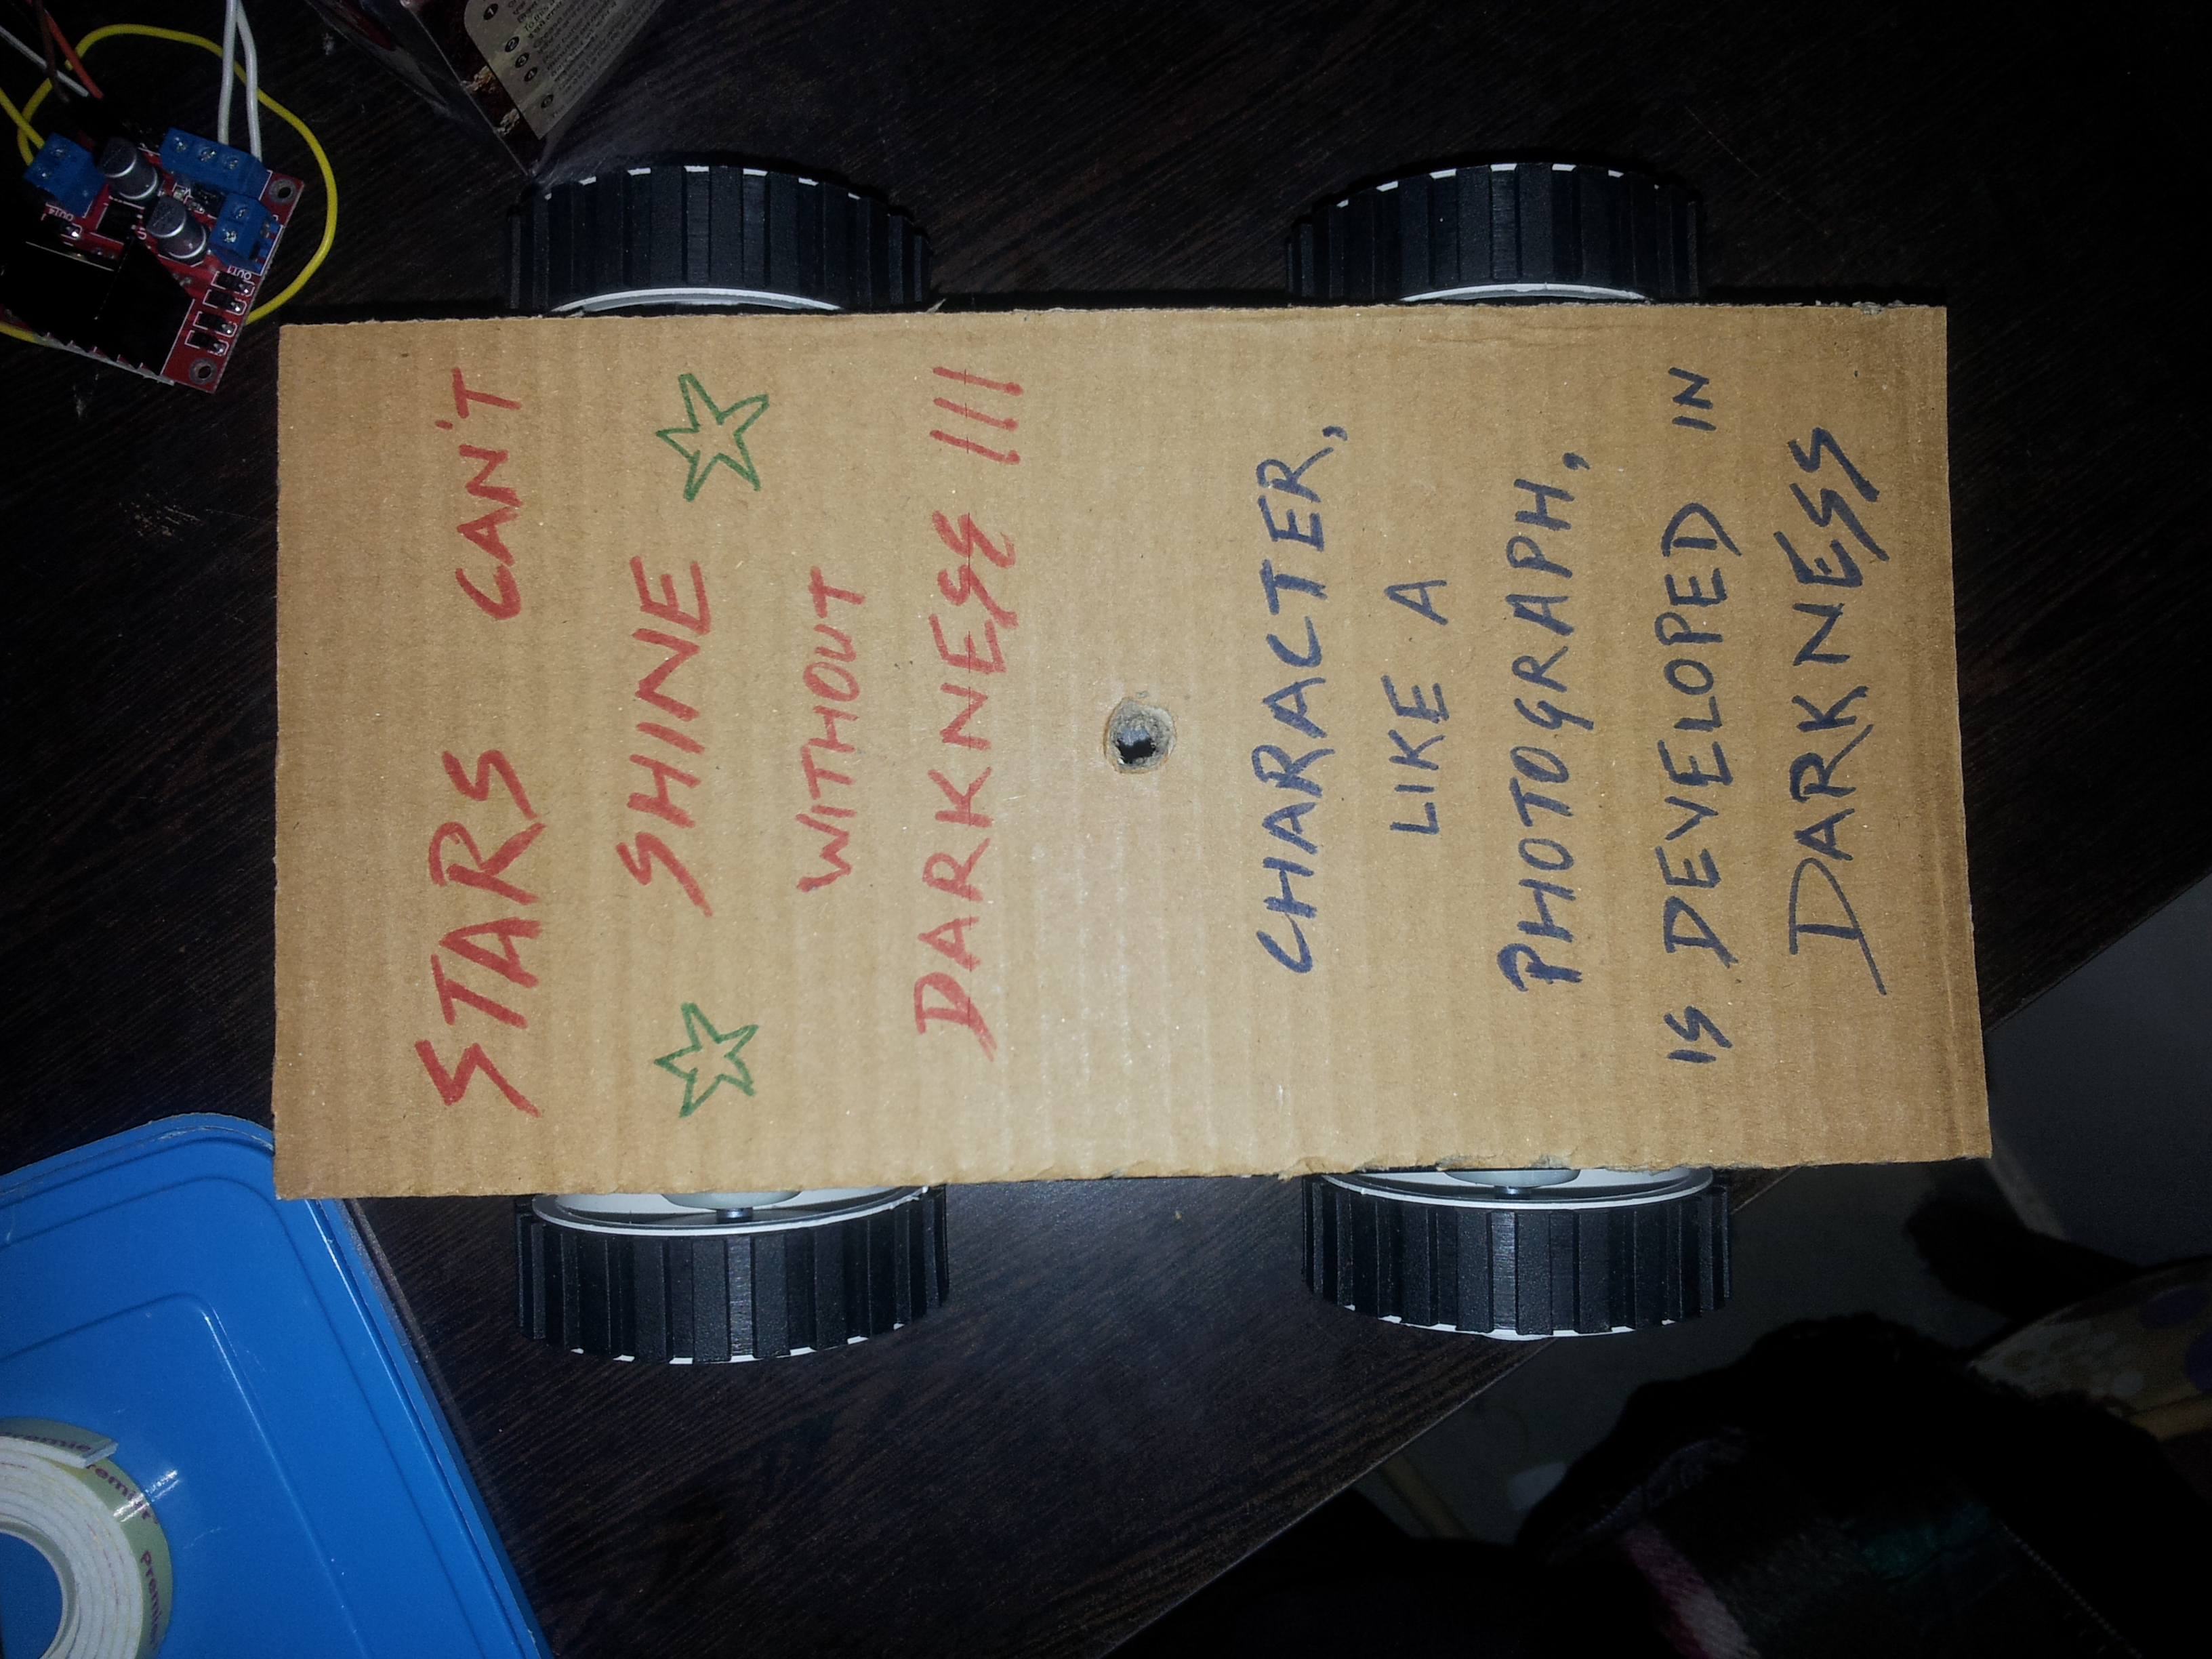 STARS CAN'T
SHINE
WITHOUT
DARKNESS !!!
CHARACTER,
LIKE A
PHOTOGRAPH,
IS DEVELOPED IN
DARKNESS
OUT1
Premier